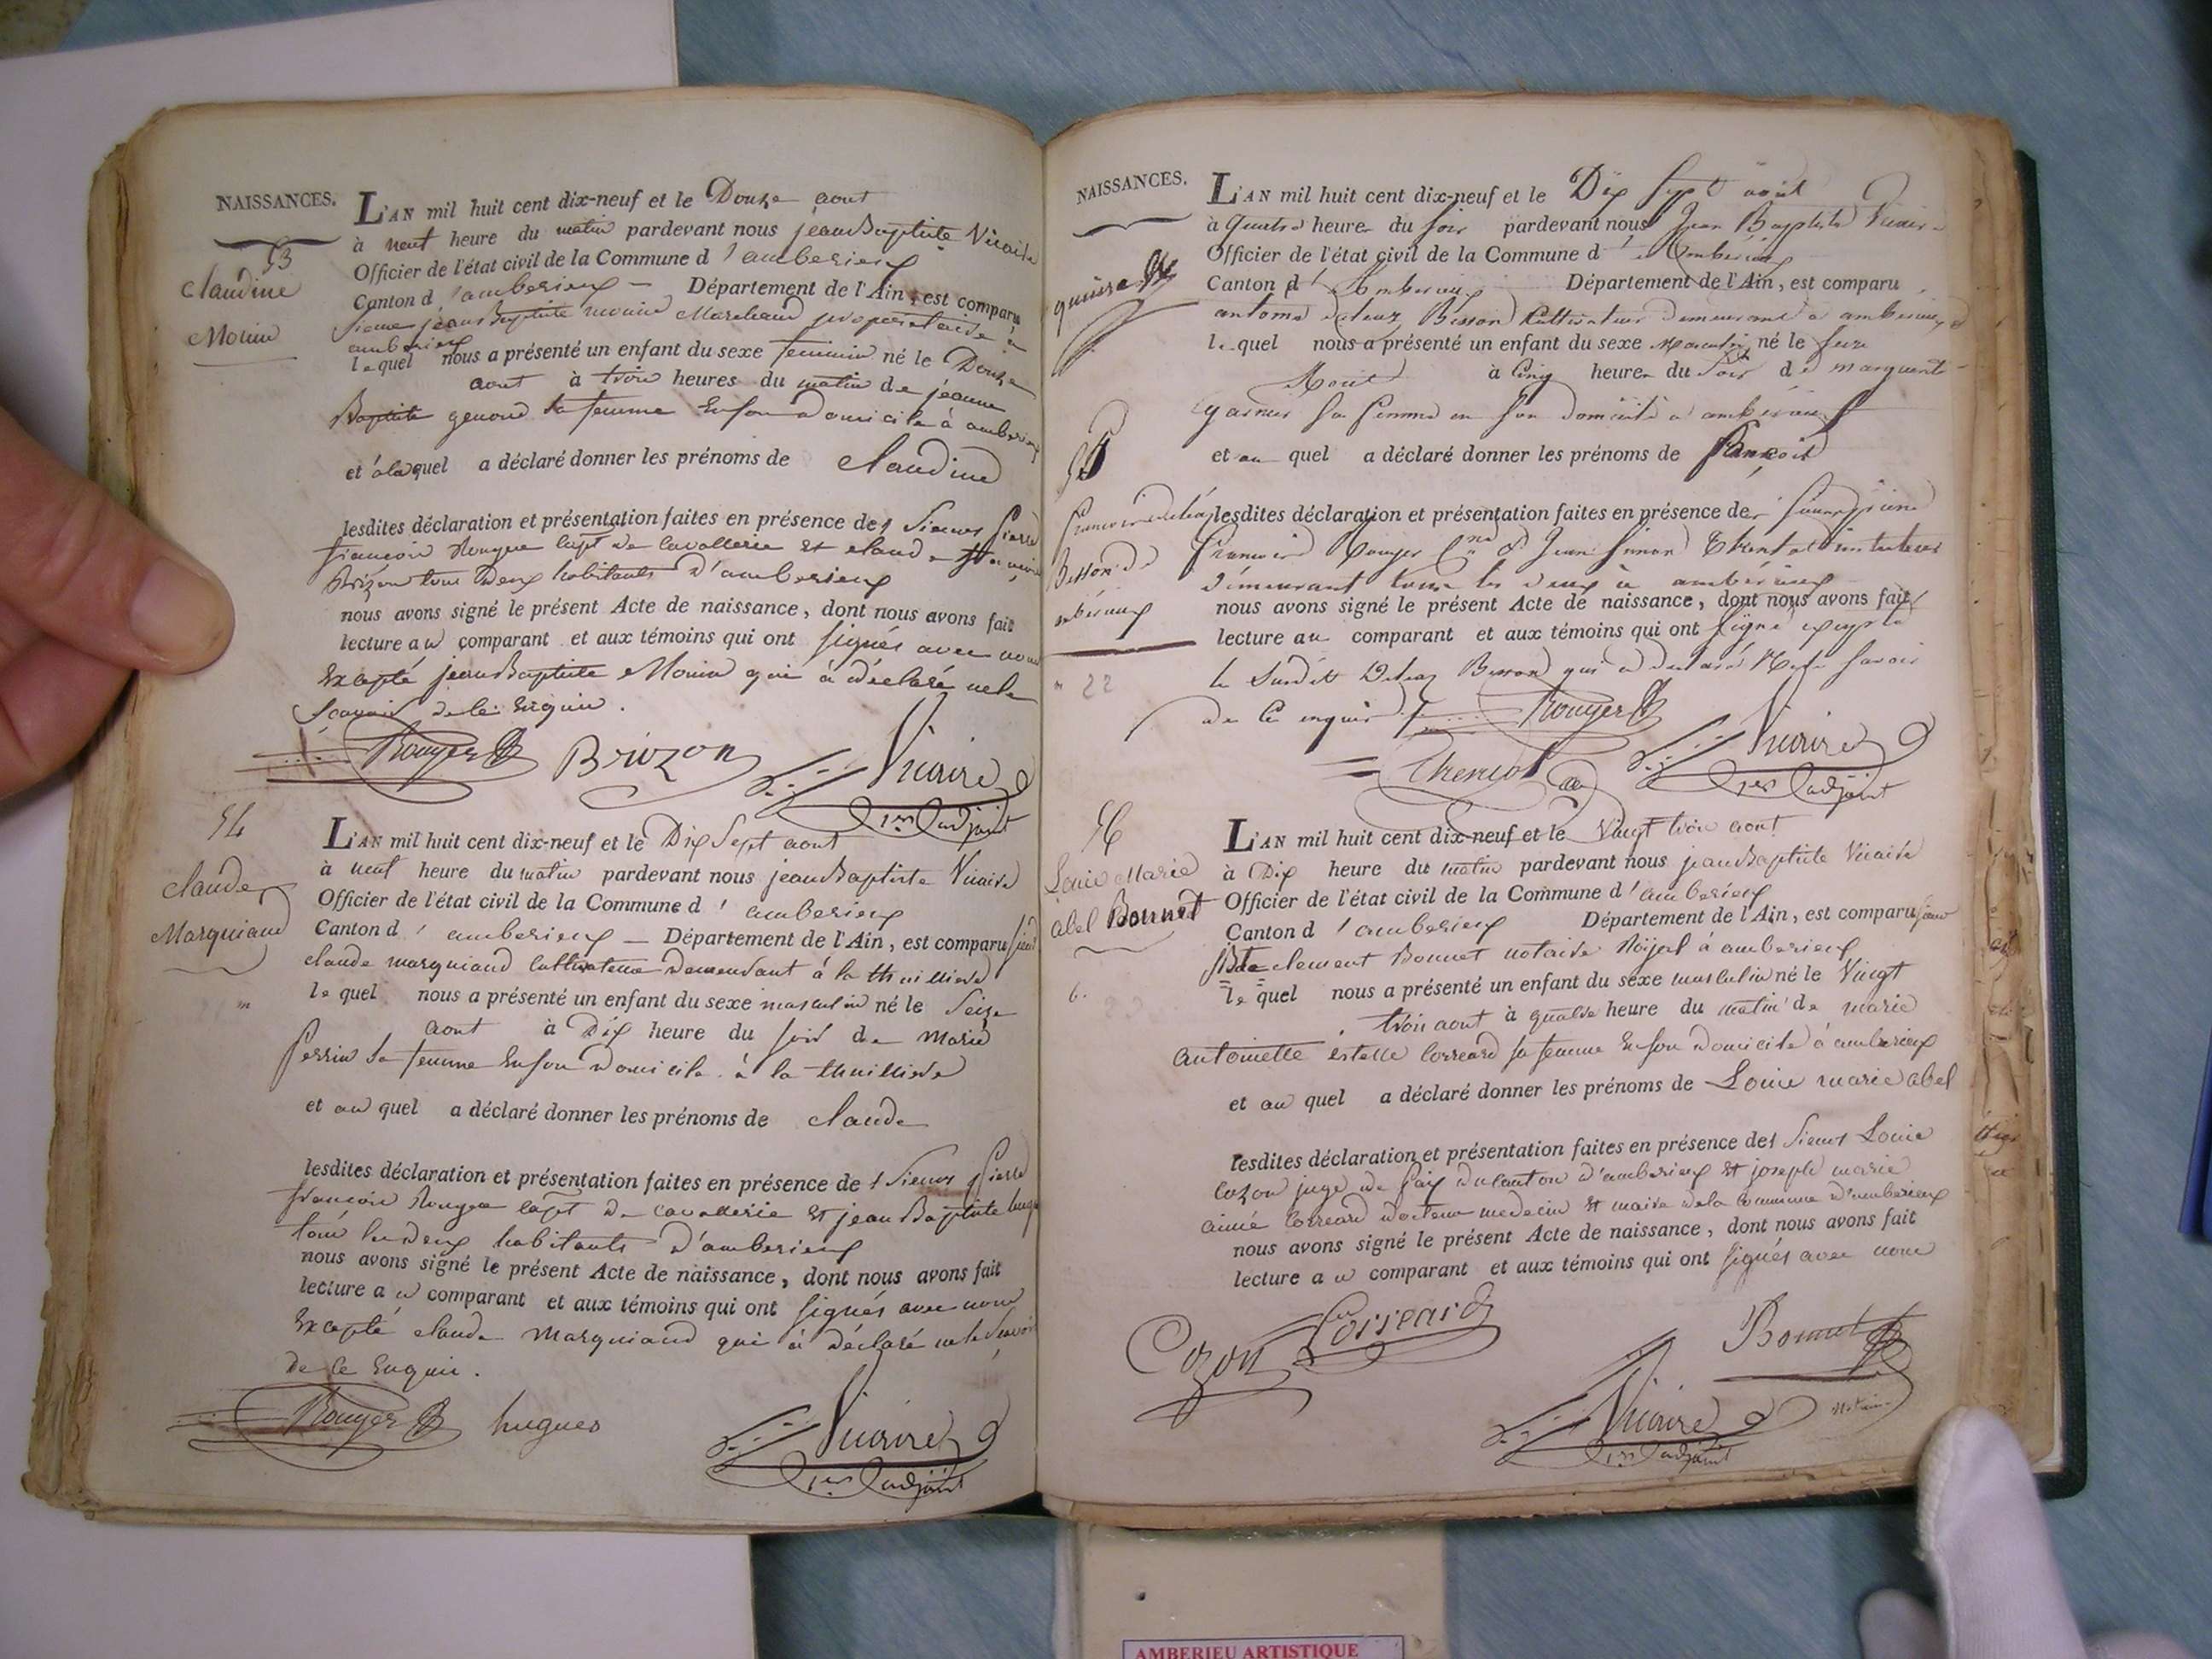 NAISSANCES.
53
claudine
Monin
L'AN mil huit cent dix-neuf et le Douze aout
à neuf heure du matin pardevant nous jean Baptiste Vicaire
Officier de l'état civil de la Commune d'amberieux
Canton d'amberieux — Département de l'Ain, est comparu
Sieur jean Baptiste monin Marchand propriétaire à
amberieux
lequel nous a présenté un enfant du sexe feminin né le Douze
aout à trois heures du matin de jeanne
Baptiste genoud sa femme En son Domicile à amberieux
et à la quel a déclaré donner les prénoms de claudine
lesdites déclaration et présentation faites en présence des Sieurs Pierre
françois Rouyer capt de cavallerie Et claude
Brizon tous deux habitants d'amberieux
nous avons signé le présent Acte de naissance, dont nous avons fait
lecture au comparant et aux témoins qui ont signés avec nous
Excepté jean Baptiste Monin qui à déclaré ne le
sçavoir de ce Enquis.
Rouyer Brizon Vicaire
1er adjoint
54
claude
Marguiand
L'AN mil huit cent dix-neuf et le Dix Sept aout
à neuf heure du matin pardevant nous jean Baptiste Vicaire
Officier de l'état civil de la Commune d'amberieux
Canton d'amberieux — Département de l'Ain, est comparu Sieur
claude marguiand cultivateur demeurant à la thuilliere
lequel nous a présenté un enfant du sexe masculin né le Seize
aout à Dix heure du soir de Marie
Perrin sa femme En son Domicile à la thuilliere
et au quel a déclaré donner les prénoms de claude
lesdites déclaration et présentation faites en présence des Sieurs Pierre
françois Rouyer capt de cavallerie Et jean Baptiste hugues
tous les deux habitants d'amberieux
nous avons signé le présent Acte de naissance, dont nous avons fait
lecture au comparant et aux témoins qui ont signés avec nous
Excepté claude Marguiand qui à déclaré ne le Savoir
de ce Enquis.
Rouyer hugues Vicaire
1er adjoint
NAISSANCES.
55
françois
Bisson
L'AN mil huit cent dix-neuf et le Dix Sept août
à quatre heure du soir pardevant nous Jean Baptiste Vicaire
Officier de l'état civil de la Commune d'Ambérieux
Canton d'Ambérieux Département de l'Ain, est comparu
antoine Bisson Cultivateur demeurant à ambérieux
lequel nous a présenté un enfant du sexe Masculin né le Seize
Aout à Cinq heure du Soir de marguerite
garnier sa femme en son domicile à ambérieux
et au quel a déclaré donner les prénoms de françois
lesdites déclaration et présentation faites en présence de Sieurs pierre
françois Rouyer & Jean Simon instituteur
démeurant tous les deux à ambérieux
nous avons signé le présent Acte de naissance, dont nous avons fait
lecture au comparant et aux témoins qui ont signé excepté
le Susdit Bisson qui a déclaré Ne le Savoir
de ce enquis
Rouyer
Vicaire
1er adjoint
56
Louis Marie
abel Bonnet
L'AN mil huit cent dix-neuf et le Vingt trois aout
à Dix heure du matin pardevant nous jean Baptiste Vicaire
Officier de l'état civil de la Commune d'amberieux
Canton d'amberieux Département de l'Ain, est comparu jean
Bte clement Bonnet notaire Roijal à amberieux
lequel nous a présenté un enfant du sexe masculin né le Vingt
trois aout à quatre heure du matin de marie
antoinette estelle Corréard sa femme En son Domicile à amberieux
et au quel a déclaré donner les prénoms de Louis marie abel
lesdites déclaration et présentation faites en présence des Sieurs Louis
cozon juge de paix du canton d'amberieux Et joseph marie
aimé Corréard docteur medecin Et maire de la Commune d'amberieux
nous avons signé le présent Acte de naissance, dont nous avons fait
lecture au comparant et aux témoins qui ont signés avec nous
Cozon Corréard Bonnet
notaire
Vicaire
1er adjoint
AMBERIEU ARTISTIQUE